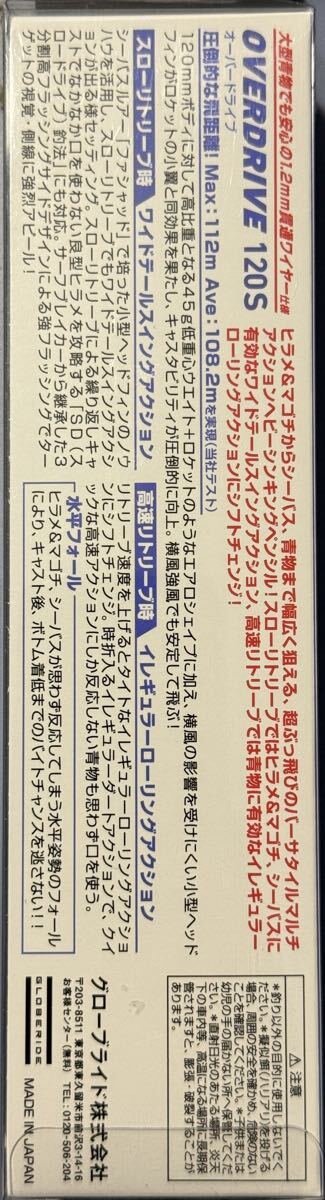 大型青物でも安心の1.2mm貫通ワイヤー仕様
OVERDRIVE 120S
オーバードライブ
ヒラメ&マゴチからシーバス、青物まで幅広く狙える、超ぶっ飛びのバーサタイルマルチ
アクションヘビーシンキングペンシル!スローリトリーブではヒラメ&マゴチ、シーバスに
有効なワイドテールスイングアクション、高速リトリーブでは青物に有効なイレギュラー
ローリングアクションにシフトチェンジ!
圧倒的な飛距離! Max:112m Ave:108.2mを実現(当社テスト)
120mmボディに対して高比重となる45g低重心ウエイト+ロケットのようなエアロシェイプに加え、横風の影響を受けにくい小型ヘッド
フィンがロケットの小翼と同効果を果たし、キャスタビリティが圧倒的に向上。横風強風でも安定して飛ぶ!
スローリトリーブ時 ワイドテールスイングアクション
シーバスルアー「ファシャッド」で培った小型ヘッドフィンのノウ
ハウを活用し、スローリトリーブでもワイドテールスイングアクシ
ョンが出る様セッティング。スローリトリーブによる繰り返しキャ
ストでなかなか口を使わない良型ヒラメを攻略する「SD(ス
ロードライブ)釣法」にも対応。サーフブレイカーから継承した3
分割高フラッシングサイドデザインによる強フラッシングでター
ゲットの視覚、側線に強烈アピール!
高速リトリーブ時 イレギュラーローリングアクション
リトリーブ速度を上げるとタイトなイレギュラーローリングアクショ
ンにシフトチェンジ。時折入るイレギュラーダートアクションで、クイ
ックな高速アクションにしか反応しない青物も思わず口を使う。
水平フォール
ヒラメ&マゴチ、シーバスが思わず反応してしまう水平姿勢のフォール
により、キャスト後、ボトム着底までのバイトチャンスを逃さない!!
⚠注意
*釣り以外の目的に使用しないでく
ださい。*擬似餌(ルアー)を投げる
場合、周囲の安全を確かめ、危険のない
ことを確認してください。*子供または
幼児の手の届かない所へ保管してくだ
さい。*直射日光のあたる場所、炎天
下の車内等、高温になる場所に長期保
管されますと、膨張・破裂することが
あります。
グローブライド株式会社
〒203-8511 東京都東久留米市前沢3-14-16
お客様センター(無料) TEL:0120-506-204
GLOBERIDE MADE IN JAPAN